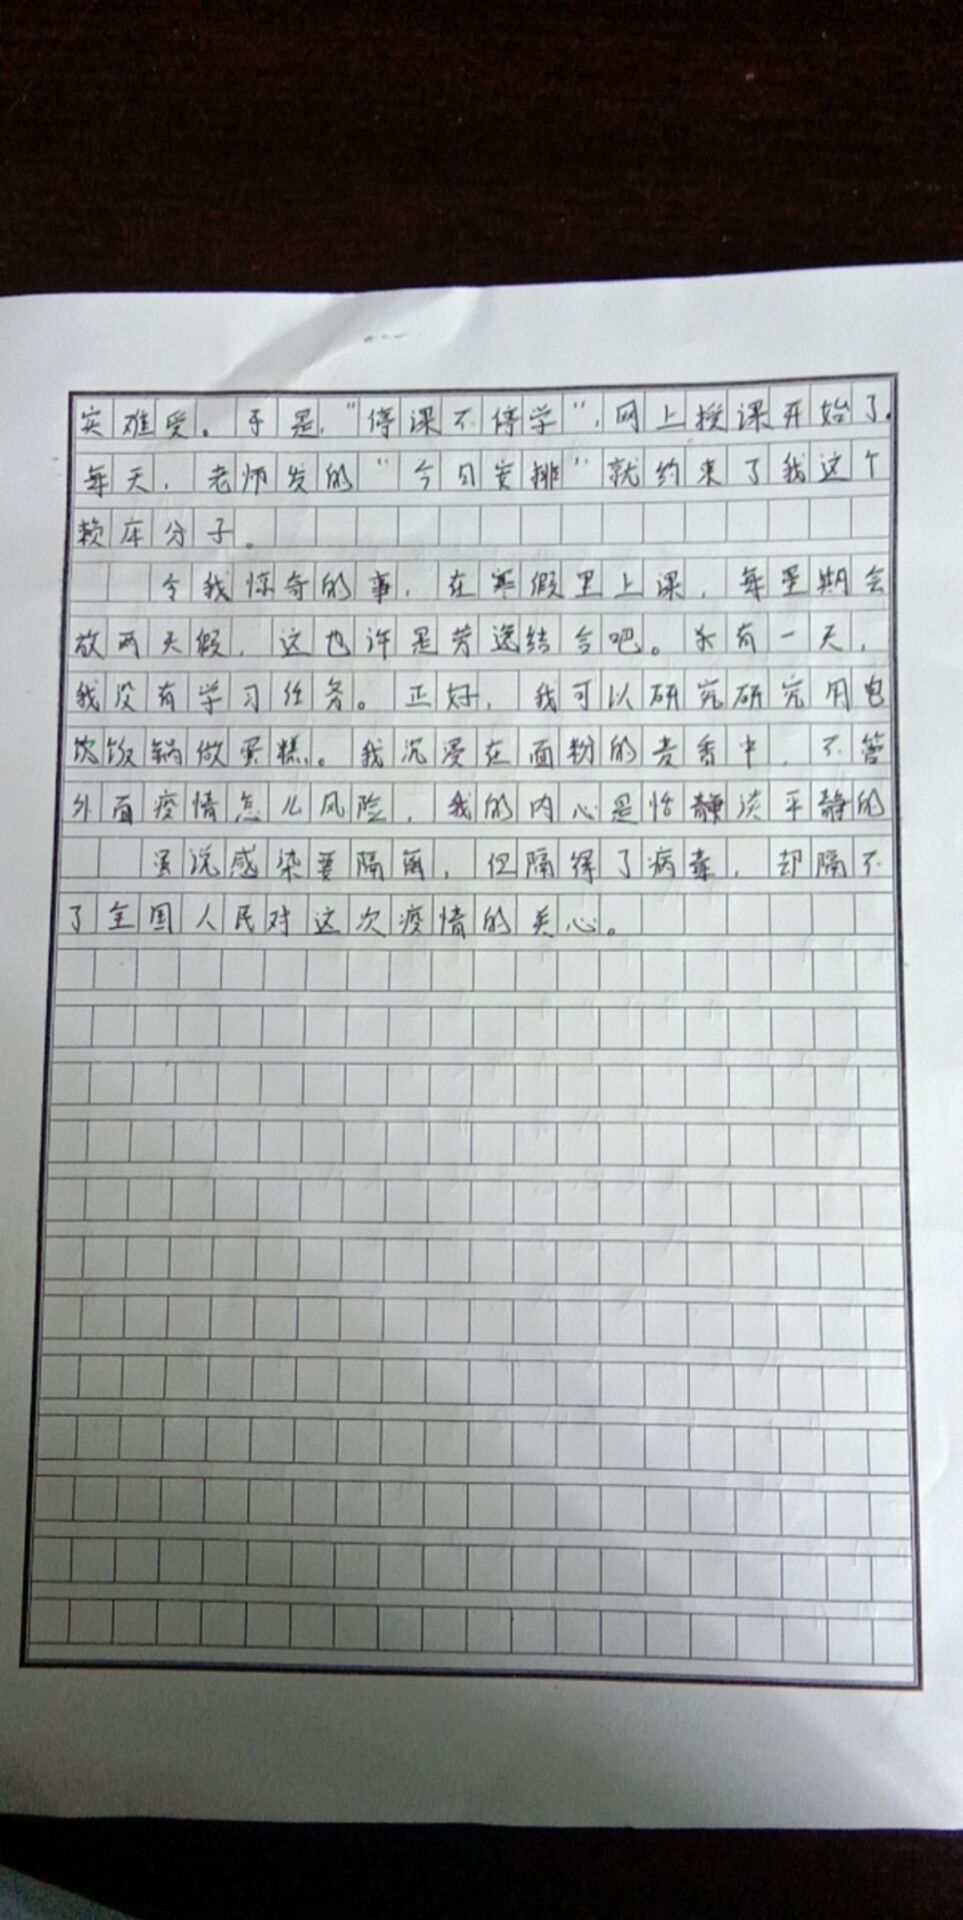 实难受。于是，“停课不停学”，网上授课开始了。
每天，老师发的“今日安排”就约束了我这个
赖床分子。
令我惊奇的事，在寒假里上课，每星期会
放两天假，这也许是劳逸结合吧。永有一天，
我没有学习任务。正好，我可以研究研究用电
饮饭锅做蛋糕。我沉浸在面粉的麦香中，不管
外面疫情怎儿风险，我的内心是恬静淡平静的
虽说感染要隔离，但隔得了病毒，却隔不
了全国人民对这次疫情的关心。